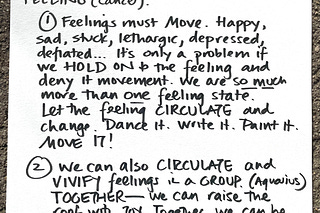 FEELING (Cancer).
① Feelings must Move. Happy,
sad, stuck, lethargic, depressed,
deflated... It's only a problem if
we HOLD ON to the feeling and
deny it movement. We are so much
more than one feeling state.
Let the feeling CIRCULATE and
change. Dance it. Write it. Paint it.
MOVE IT!
② We can also CIRCULATE and
VIVIFY feelings in a GROUP. (Aquarius)
TOGETHER— we can raise the
roof with JOY. Together we can be